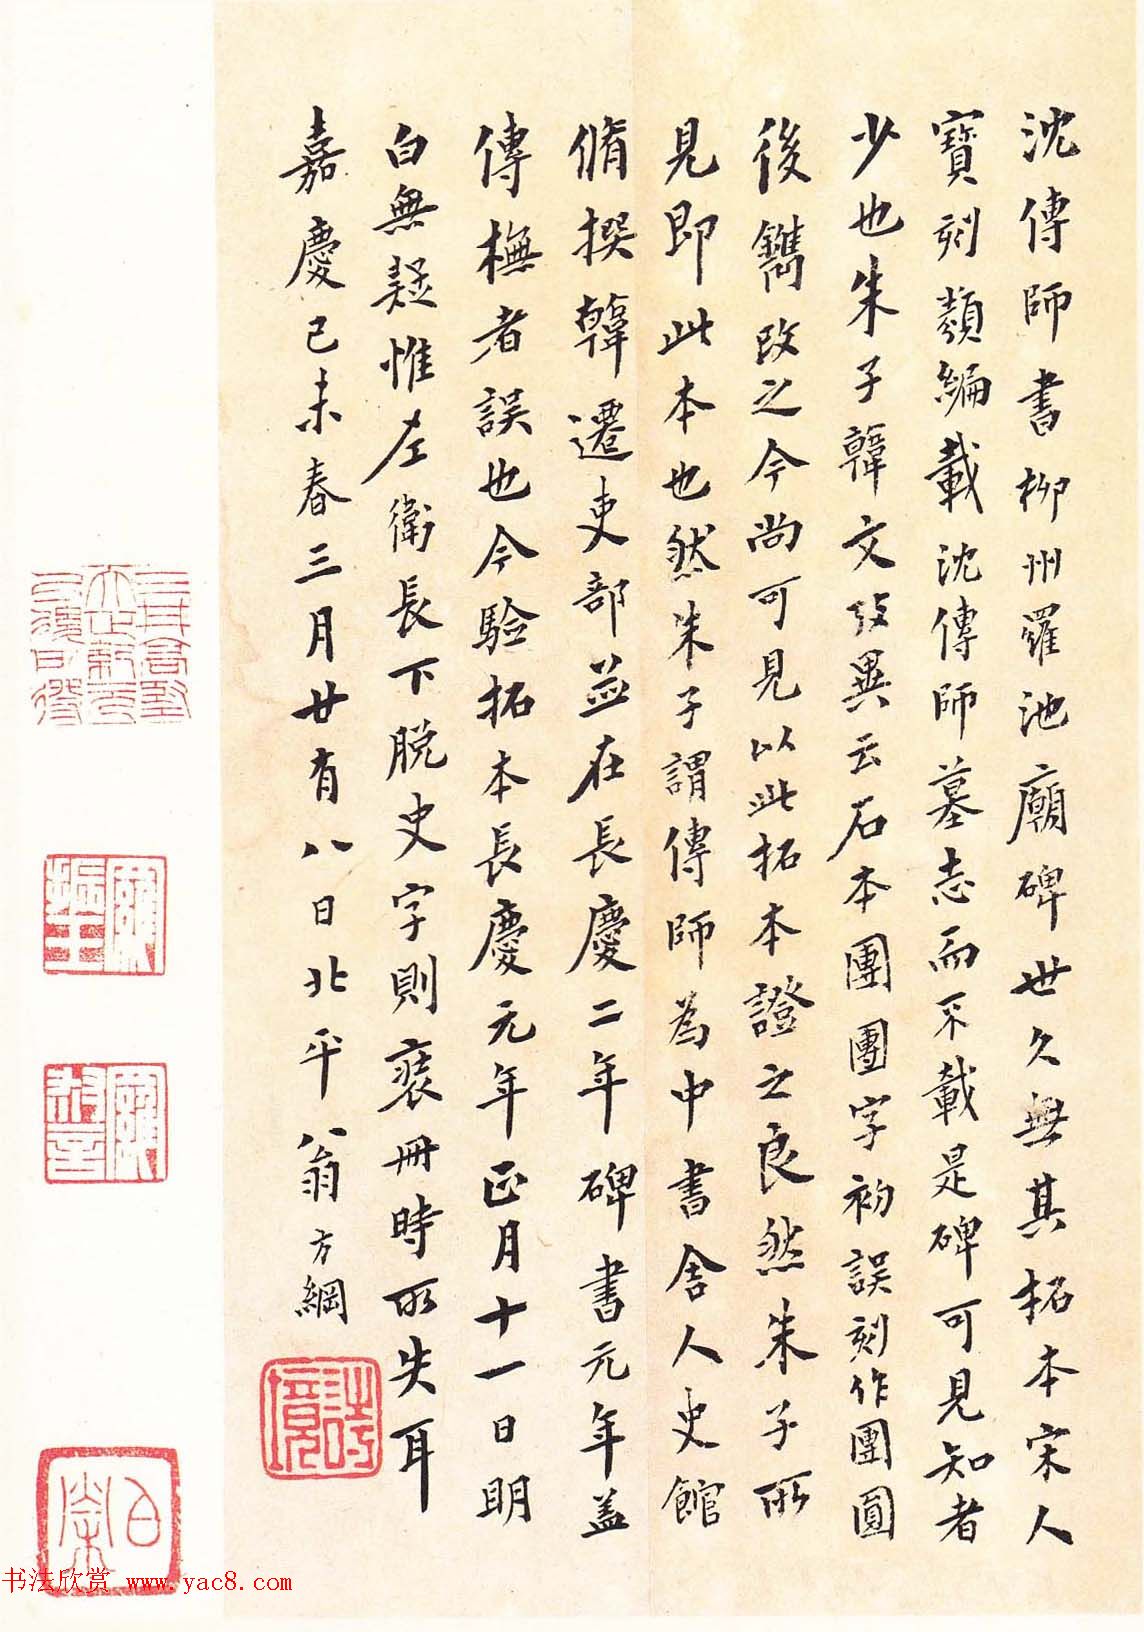 沈傳師書柳州羅池廟碑世久無其拓本宋人
寶刻類編載沈傳師墓志而不載是碑可見知者
少也朱子韓文攷異云石本團團字初誤刻作團圓
後鐫改之今尚可見以此拓本證之良然朱子所
見即此本也然朱子謂傳師為中書舍人史館
脩撰韓遷吏部並在長慶二年碑書元年蓋
傳橅者誤也今驗拓本長慶元年正月十一日明
白無疑惟左衛長下脫史字則裵冊時所失耳
嘉慶己未春三月廿有八日北平翁方綱
詩境
羅振玉
羅叔言
百榮
书法欣赏 www.yac8.com